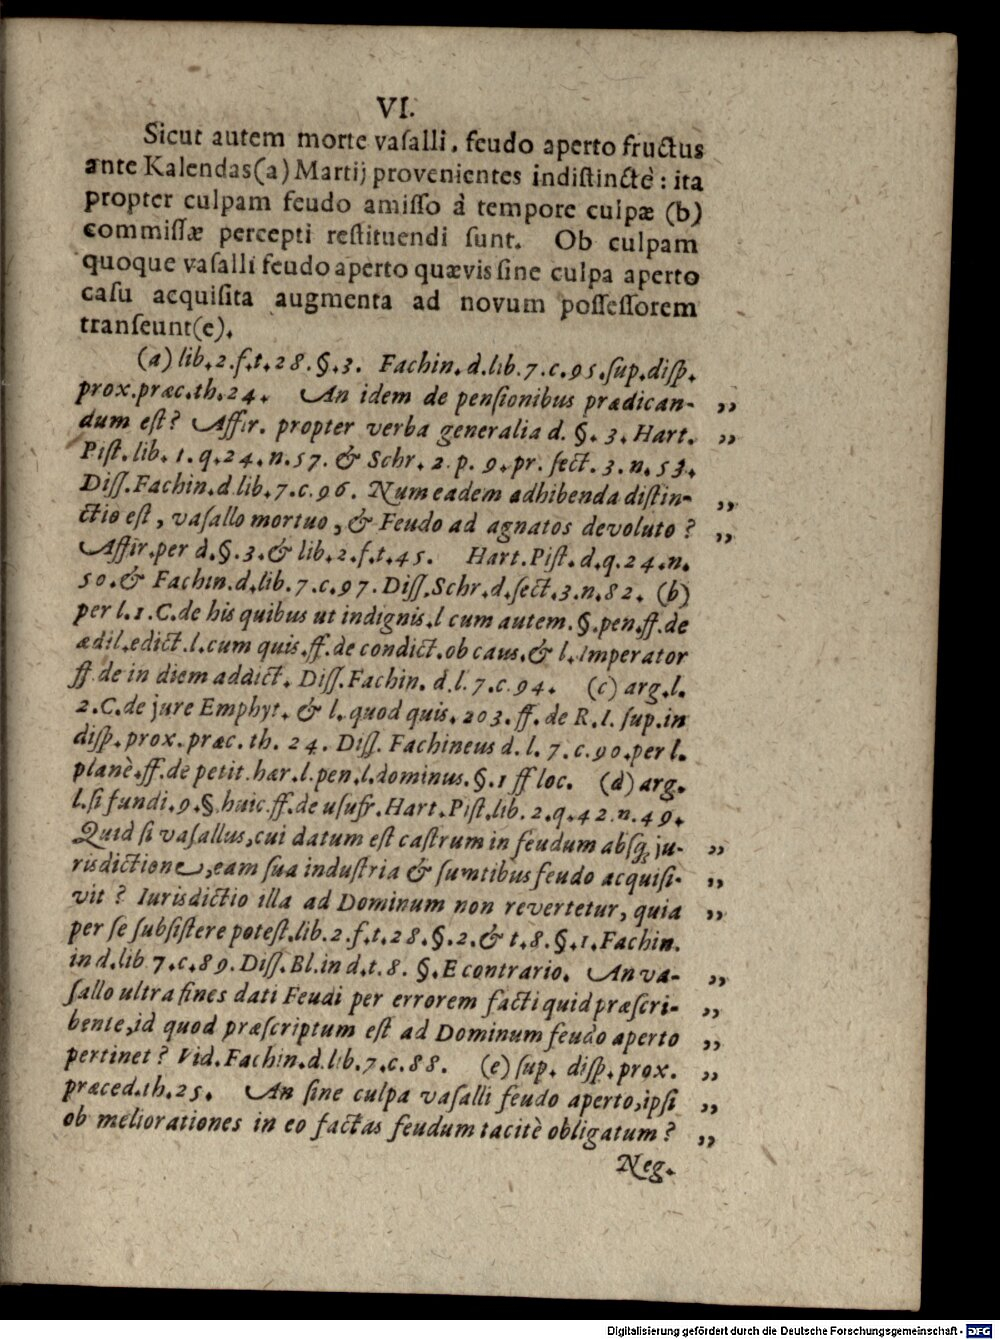 VI.
Sicut autem morte vaſalli, feudo aperto fructus
ante Kalendas(a) Martij provenientes indiſtinctè: ita
propter culpam feudo amiſſo à tempore culpæ (b)
commiſſæ percepti reſtituendi ſunt. Ob culpam
quoque vaſalli feudo aperto quævis ſine culpa aperto
caſu acquiſita augmenta ad novum poſſeſſorem
tranſeunt(e).
(a) lib. 2. f. t. 28. §. 3. Fachin. d. lib. 7. c. 95. ſup. diſp.
prox. præc. th. 24. An idem de penſionibus prædican- „
dum eſt? Affir. propter verba generalia d. §. 3. Hart. „
Piſt. lib. 1. q. 24. n. 57. & Schr. 2. p. 9. pr. ſect. 3. n. 53.
Diſſ. Fachin. d. lib. 7. c. 96. Num eadem adhibenda diſtin- „
ctio eſt, vaſallo mortuo, & Feudo ad agnatos devoluto? „
Affir. per d. §. 3. & lib. 2. f. t. 45. Hart. Piſt. d. q. 24. n.
50. & Fachin. d. lib. 7. c. 97. Diſſ. Schr. d. ſect. 3. n. 82. (b)
per l. 1. C. de his quibus ut indignis. l cum autem. §. pen. ff. de
ædil. edict. l. cum quis. ff. de condict. ob caus. & l. Imperator
ff. de in diem addict. Diſſ. Fachin. d. l. 7. c. 94. (c) arg. l.
2. C. de jure Emphyt. & l. quod quis. 203. ff. de R. I. ſup. in
diſp. prox. præc. th. 24. Diſſ. Fachineus d. l. 7. c. 90. per l.
planè. ff. de petit. hær. l. pen. l. dominus. §. 1 ff loc. (d) arg.
l. ſi fundi. 9. §. huic. ff. de uſufr. Hart. Piſt. lib. 2. q. 42 n. 49.
Quid ſi vaſallus, cui datum eſt caſtrum in feudum abſq; ju- „
risdictione, eam ſua induſtria & ſumtibus feudo acquiſi- „
vit? Iurisdictio illa ad Dominum non revertetur, quia „
per ſe ſubſiſtere poteſt. lib. 2. f. t. 28. §. 2. & t. 8. §. 1. Fachin.
in d. lib 7. c. 89. Diſſ. Bl. in d. t. 8. §. E contrario. An va- „
ſallo ultra fines dati Feudi per errorem facti quid præſcri- „
bente, id quod præſcriptum eſt ad Dominum feudo aperto „
pertinet? Vid. Fachin. d. lib. 7. c. 88. (e) ſup. diſp. prox. „
præced. th. 25. An ſine culpa vaſalli feudo aperto, ipſi „
ob meliorationes in eo factas feudum tacitè obligatum? „
Neg.
Digitalisierung gefördert durch die Deutsche Forschungsgemeinschaft - DFG